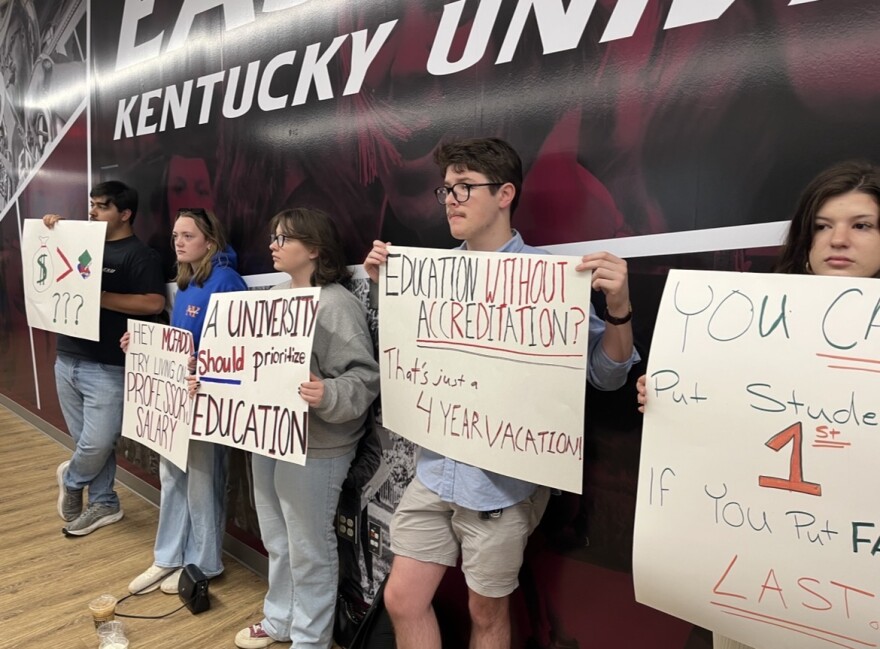 KENTUCKY UNIV
$ >
???
HEY
TRY LIVING ON
PROFESSORS
SALARY
A UNIVERSITY
should prioritize
EDUCATION
EDUCATION WITHOUT
ACCREDITATION?
That's just a
4 YEAR VACATION!
YOU
Put
1st
IF You Put
LAST.